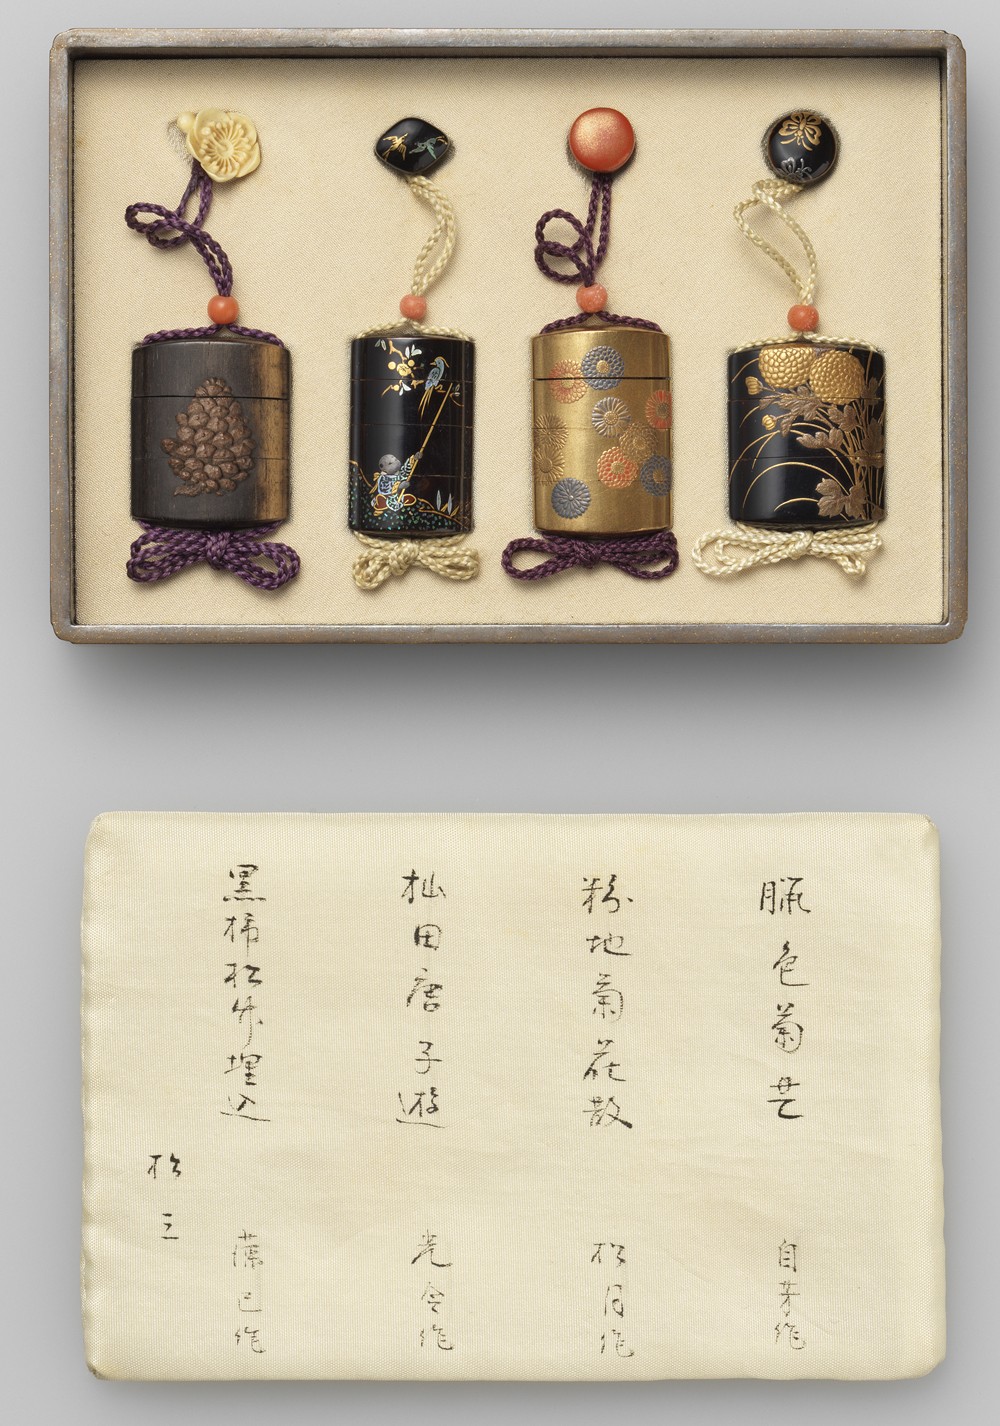 臘色菊芒
自芽作
粉地菊花散
松月作
杣田唐子遊
光令作
黒柿松笠埋込
巳作
松三